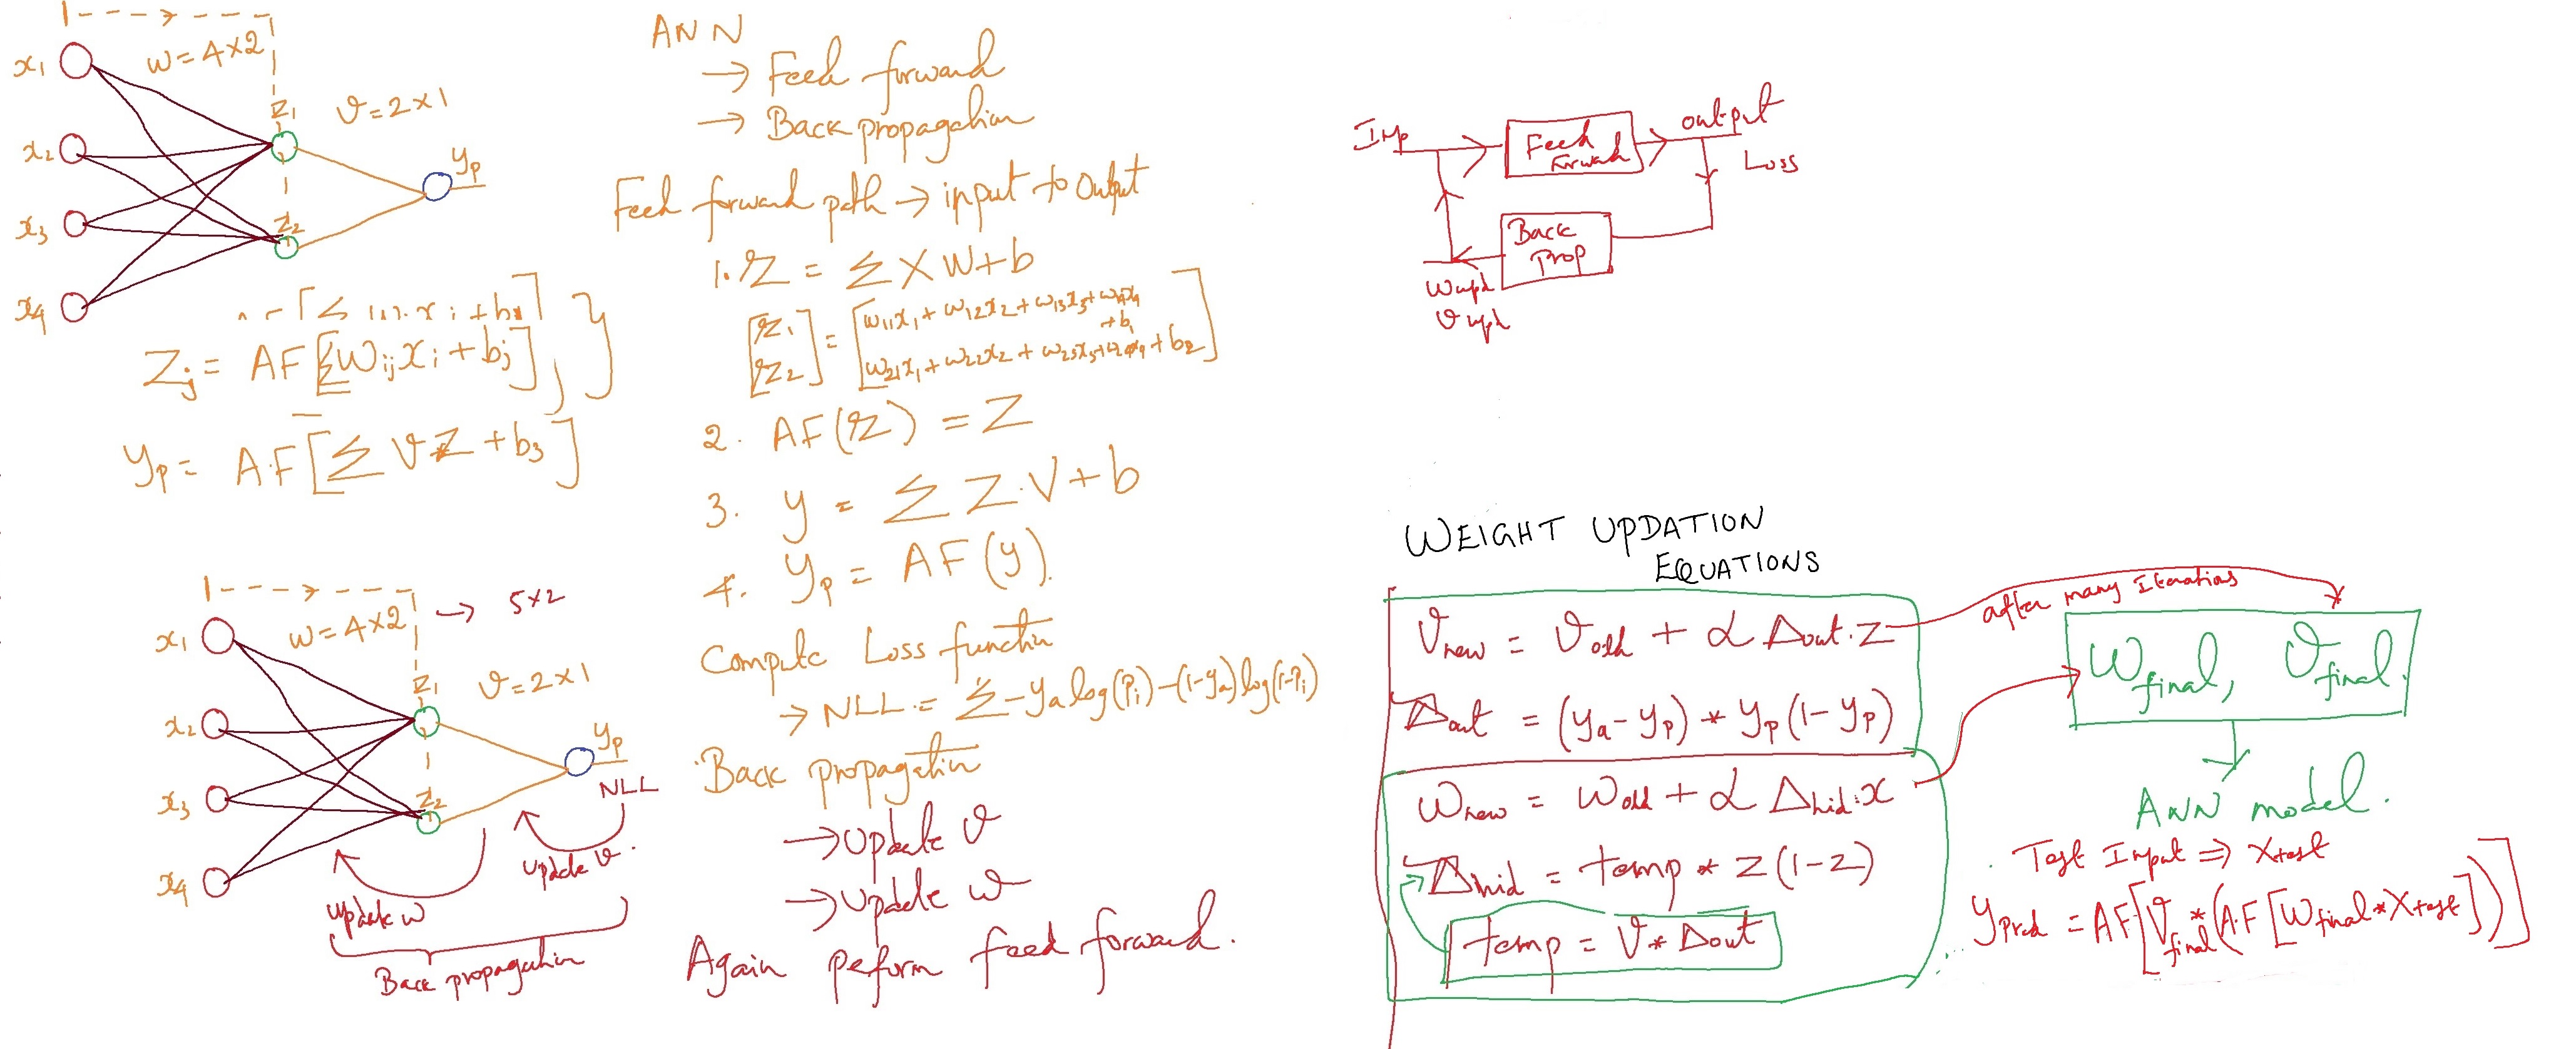 x₁
w = 4×2
z₁
v = 2×1
x₂
yₚ
x₃
z₂
x₄
Zⱼ = AF[Σwᵢⱼxᵢ + bⱼ]
yₚ = AF[Σ vZ + b₃]
x₁
w = 4×2 → 5×2
z₁
v = 2×1
x₂
yₚ
NLL
x₃
z₂
x₄
update v
update w
Back propagation
ANN
→ Feed forward
→ Back propagation
Feed forward path → input to output
1. z = Σ X W + b
[z₁ z₂] = [w₁₁x₁ + w₁₂x₂ + w₁₃x₃ + w₁₄x₄ + b₁
w₂₁x₁ + w₂₂x₂ + w₂₃x₃ + w₂₄x₄ + b₂]
2. AF(z) = Z
3. y = Σ Z·V + b
4. yₚ = AF(y).
Compute Loss function
→ NLL = Σ -yₐ log(Pᵢ) - (1-yₐ) log(1-Pᵢ)
Back propagation
→ Update v
→ Update w
Again peform feed forward.
Inp
Feed
forward
output
Loss
Back
Prop
Wupd
vupd
WEIGHT UPDATION
EQUATIONS
Vnew = Vold + α Δout·z
Δout = (yₐ - yₚ) * yₚ(1 - yₚ)
Wnew = Wold + α Δhid·x
Δhid = temp * z(1 - z)
temp = V * Δout
after many Iterations
Wfinal, Vfinal.
ANN model.
Test Input ⇒ Xtest
yPred = AF[Vfinal * (A.F[Wfinal * Xtest])]